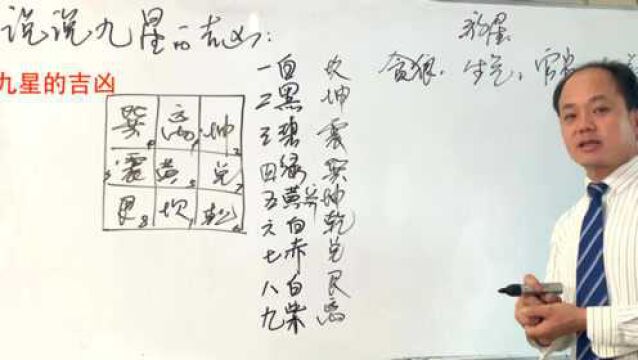 说说九星的吉凶:
九星的吉凶
巽4 离9 坤2
3震 黄5 兑7
艮8 坎1 乾6
一白 坎
二黑 坤
三碧 震
四绿 巽
五黄 坤
六白 乾
七赤 兑
八白 艮
九紫 离
贪狼、生气、官